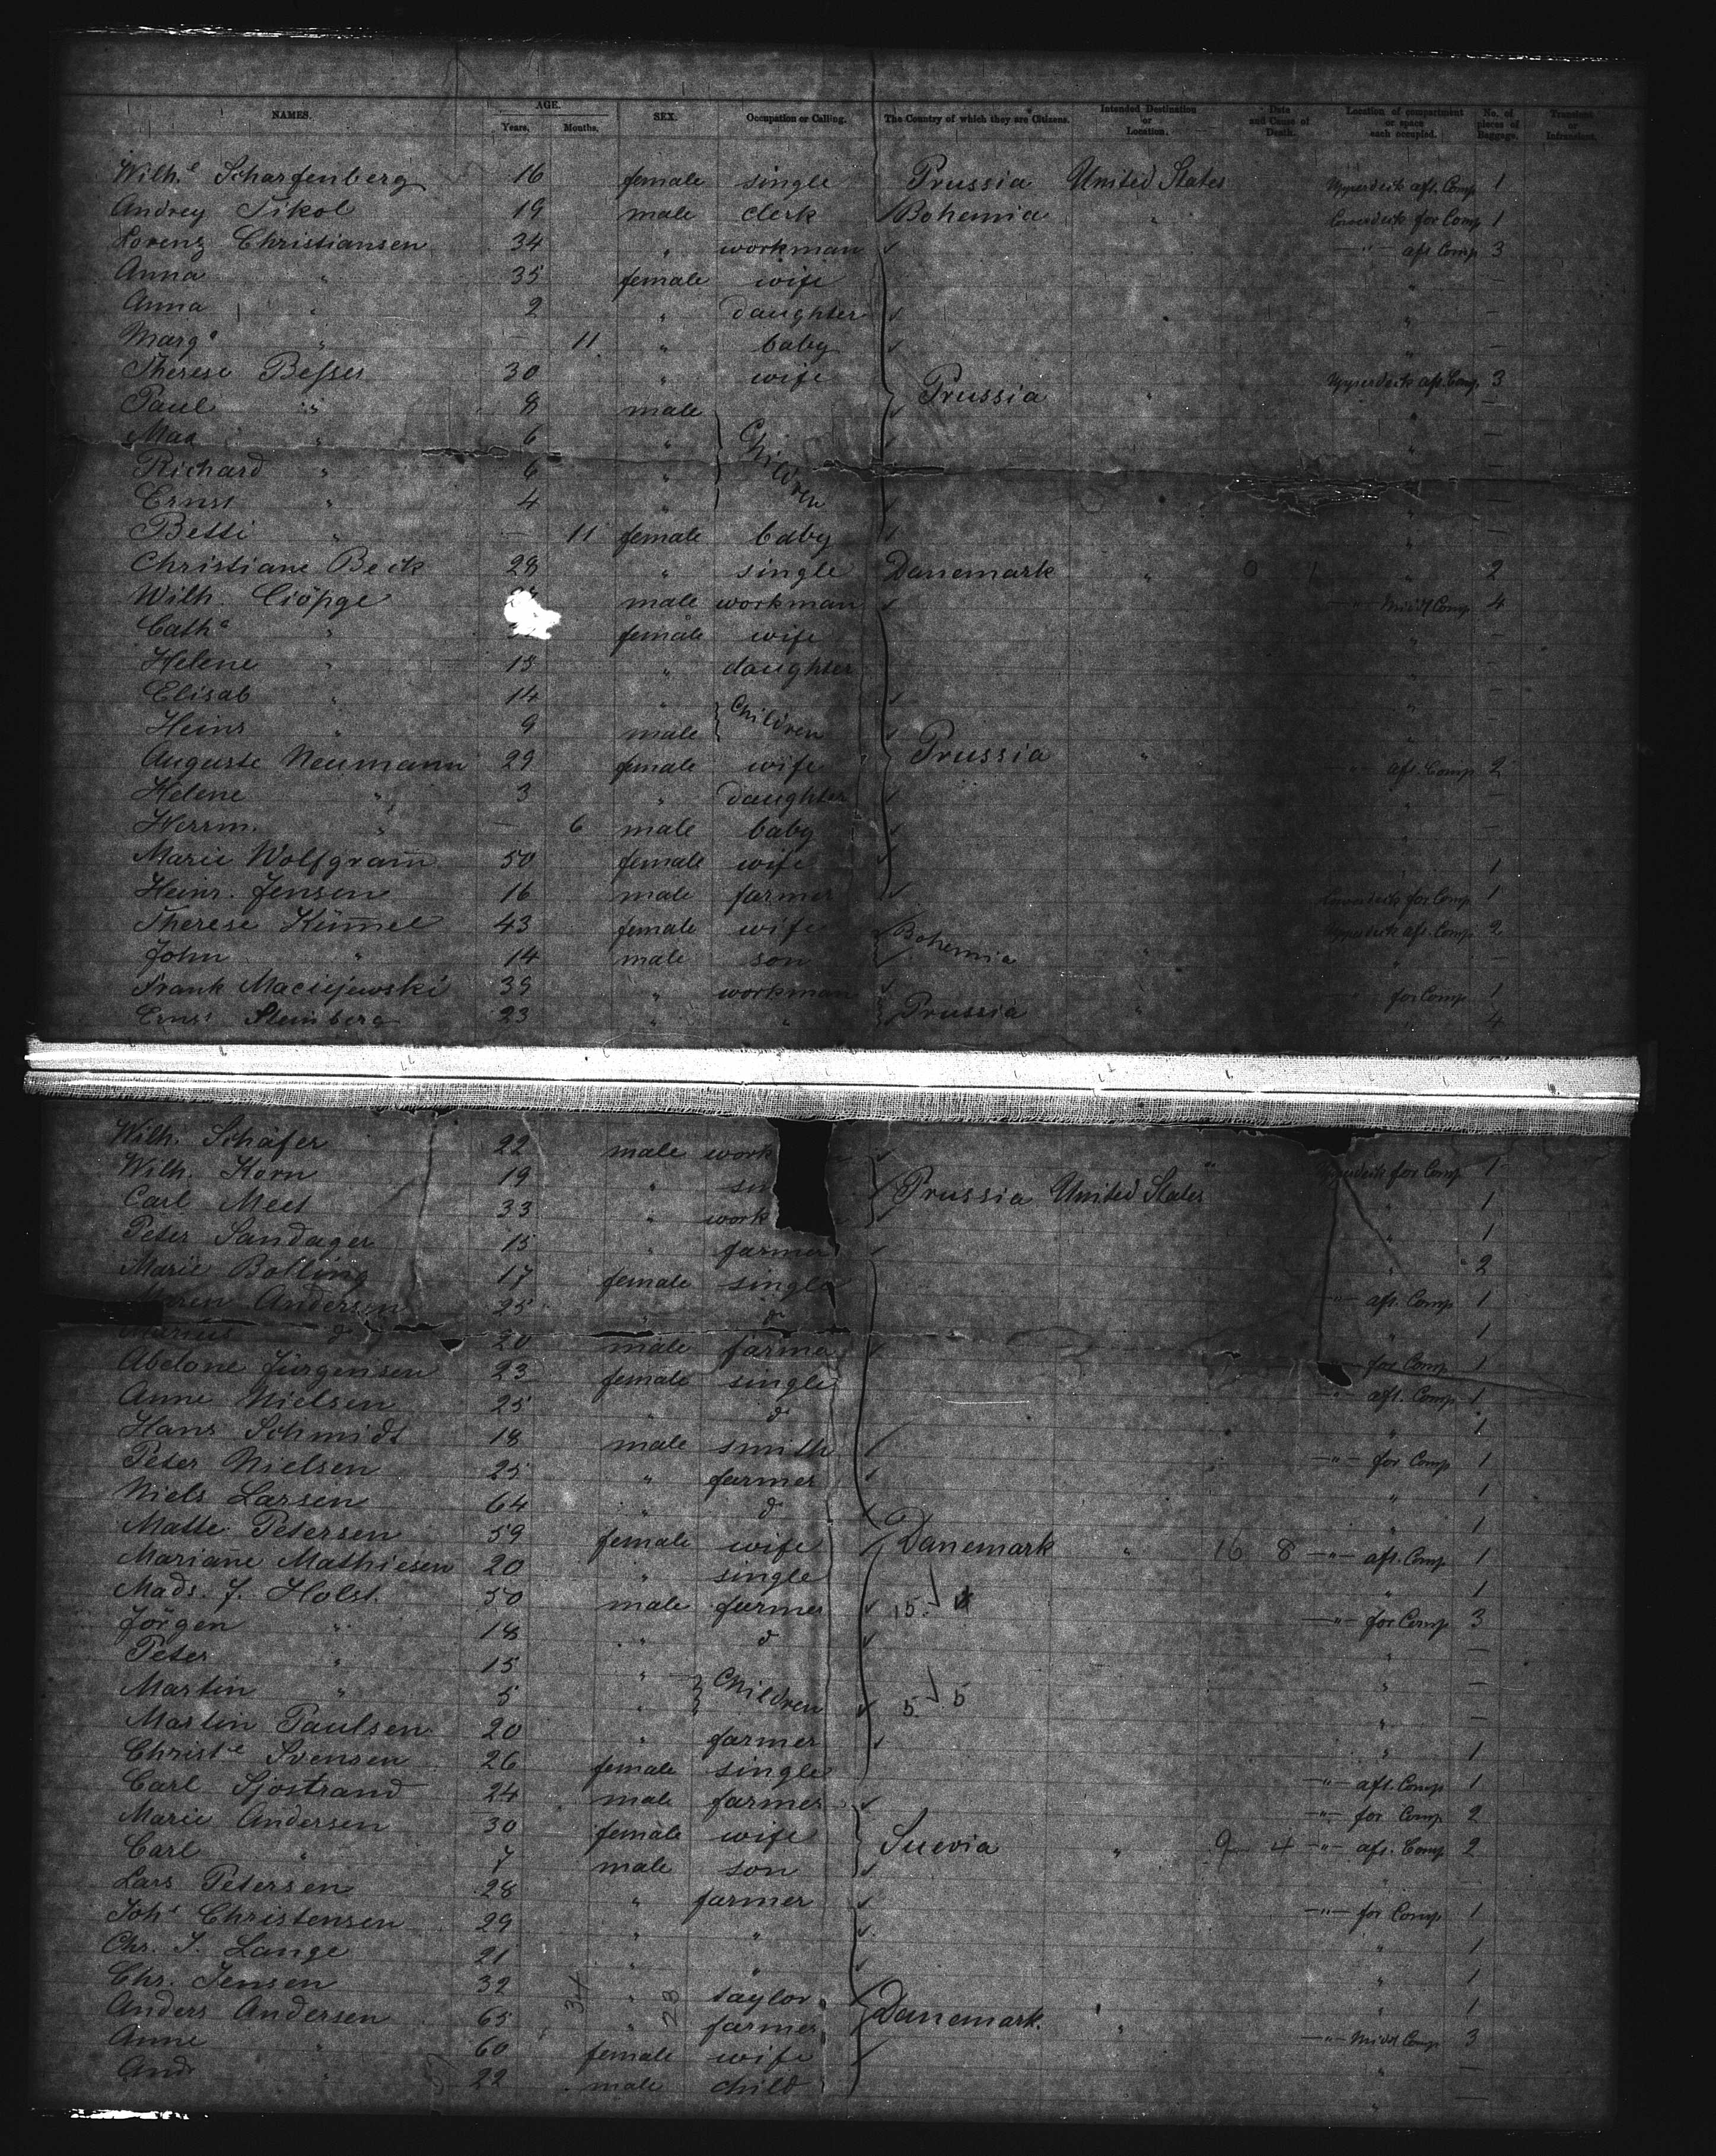 NAMES. AGE. Years. Months. SEX. Occupation or Calling. The Country of which they are Citizens. Intended Destination or Location. Date and Cause of Death. Location of compartment or space each occupied. No. of pieces of Baggage. Transient or Intransient.
Wilh.e Scharfenberg 16 female single Prussia United States Upperdeck aft. Comp 1
Andrey Sikol 19 male clerk Bohemia " Lowerdeck for Comp 1
Lorenz Christiansen 34 " workman —"— aft Comp 3
Anna " 35 female wife " —
Anna " 2 " daughter " —
Marg.e " — 11 " baby " —
Therese Besser 30 " wife Prussia " Upperdeck aft. Comp. 3
Paul " 8 male " —
Max " 6 " Children " —
Richard " 6 " —
Ernst " 4 " " —
Betti " — 11 female baby " —
Christiane Beck 28 " single Danemark " " 2
Wilh. male workman —"— Midd Comp 4
Cath.e " female wife " —
Helene " 15 " daughter " —
Elisab " 14 " Children " —
Heinr " 9 male " —
Auguste Neumann 29 female wife Prussia " —"— aft. Comp 2
Helene " 3 " daughter " —
Herrm. " — 6 male baby " —
Marie Wolfgram̄ 50 female wife " 1
Heinr. Jensen 16 male farmer Lowerdeck for Comp 1
Therese Küm̄el 43 female wife Bohemia " Upperdeck aft. Comp 2
John " 14 male son " —
Frank Maciejewski 39 " workman Prussia " for Comp 1
Ernst Steinberg 23 " " 4
Wilh. Schäfer 22 male work
Wilh. Korn 19 " Prussia United States Upperdeck for Comp 1
Carl Meet 33 " work " 1
Peter Sandager 15 " farmer " 1
Marie Bolling 17 female single " 2
Maren Andersen 25 " do —"— aft. Comp 1
Marius do 20 male farme " 1
Abelone Jürgensen 23 female single —"— for Comp 1
Anne Nielsen 25 " do —"— aft. Comp 1
Hans Schmidt 18 male smith " 1
Peter Nielsen 25 " farmer —"— for Comp 1
Niels Larsen 64 " do " 1
Matte Petersen 59 female wife Danemark " 16 8 " 1
Mariane Mathiesen 20 " single —"— aft. Comp 1
Mads. J. Holst. 50 male farmer 15 " 1
Jörgen " 18 " do —"— for Comp 3
Peter " 15 " Children " —
Martin " 5 " 5 5 " —
Martin Paulsen 20 " farmer " —
Christ.e Svensen 26 female single " 1
Carl Sjostrand 24 male farmer —"— aft. Comp 1
Marie Andersen 30 female wife Suevia " 9 4 —"— for Comp 2
Carl " 7 male son —"— aft. Comp 2
Lars Petersen 28 " farmer " —
Joh.s Christensen 29 " " —"— for Comp 1
Chr. J. Lange 21 " " " 1
Chr. Jensen 32 34 " 28 taylor " 1
Anders Andersen 65 " farmer Danemark. " " 1
Anne " 60 female wife —"— Midd Comp 3
Andr " 22 male child " —